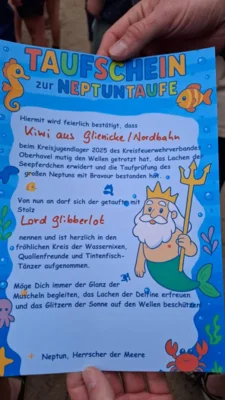 TAUFSCHEIN
zur NEPTUNTAUFE
Hiermit wird feierlich bestätigt, dass
Kiwi aus Glienicke/Nordbahn
beim Kreisjugendlager 2025 des Kreisfeuerwehrverbandes
Oberhavel mutig den Wellen getrotzt hat, das Lachen der
Seepferdchen erwidert und die Taufprüfung des
großen Neptuns mit Bravour bestanden hat.
Von nun an darf sich der getaufte mit
Stolz
Lord glibberlot
nennen und ist herzlich in den
fröhlichen Kreis der Wassernixen,
Quallenfreunde und Tintenfisch-
Tänzer aufgenommen.
Möge Dich immer der Glanz der
Muscheln begleiten, das Lachen der Delfine erfreuen
und das Glitzern der Sonne auf den Wellen beschützen.
Neptun, Herrscher der Meere